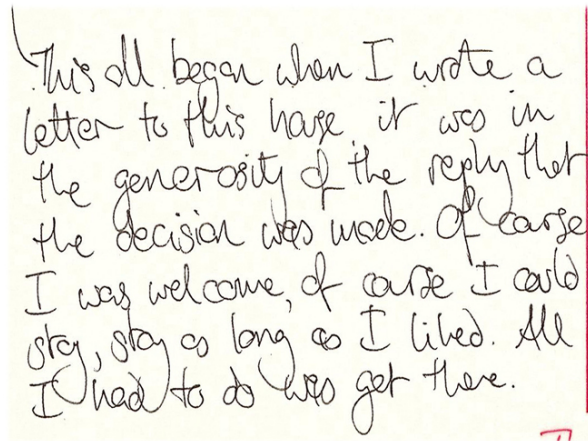 This all began when I wrote a
letter to this house it was in
the generosity of the reply that
the decision was made. Of course
I was welcome, of course I could
stay, stay as long as I liked. All
I had to do was get there.